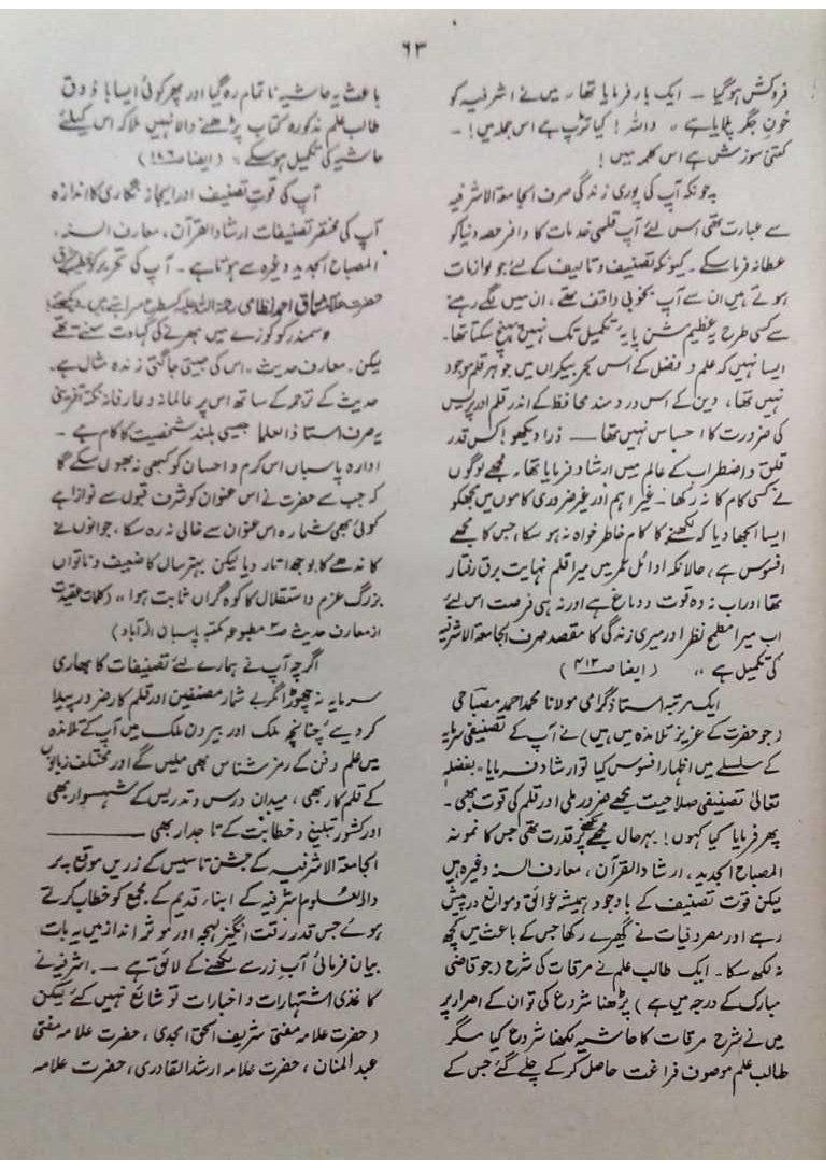 ۶۳
فروکش ہوگیا ۔ ایک بار فرمایا تھا۔ میں نے اشرفیہ کو
خونِ جگر پلایا ہے » واللہ! کیا تڑپ ہے اس جملہ میں! ۔
کتنی سوزش ہے اس کلمہ میں!
چونکہ آپ کی پوری زندگی صرف الجامعۃ الاشرفیہ
سے عبارت تھی اس لئے آپ قلمی خدمات کا وافر حصہ دنیا کو
عطا نہ فرما سکے۔ کیونکہ تصنیف و تالیف کے لئے جو لوازمات
ہوتے ہیں ان سے آپ بخوبی واقف تھے، ان میں لگے رہنے
سے کسی طرح یہ عظیم مشن پایہ تکمیل تک نہیں پہنچ سکتا تھا۔
ایسا نہیں کہ علم و فضل کے اس بحر بیکراں میں جوہر قلم موجود
نہیں تھا، دین کے اس درد مند محافظ کے اندر قلم اور پریس
کی ضرورت کا احساس نہیں تھا — ذرا دیکھو! کس قدر
قلق و اضطراب کے عالم میں ارشاد فرمایا تھا۔ مجھے لوگوں
نے کسی کام کا نہ رکھا۔ غیر اہم اور غیر ضروری کاموں میں مجھ کو
ایسا الجھا دیا کہ لکھنے کا کام خاطر خواہ نہ ہو سکا، جس کا مجھے
افسوس ہے، حالانکہ اوائل عمر میں میرا قلم نہایت برق رفتار
تھا اور اب نہ وہ قوت و دماغ ہے اور نہ ہی فرصت اس لئے
اب میرا مطمح نظر اور میری زندگی کا مقصد صرف الجامعۃ الاشرفیہ
کی تکمیل ہے ،، (ایضا صـ ۴۱۲)
ایک مرتبہ استاذ گرامی مولانا محمد احمد مصباحی
(جو حضرت کے عزیز تلامذہ میں ہیں) نے آپ کے تصنیفی سرمایہ
کے سلسلے میں اظہار افسوس کیا تو ارشاد فرمایا » بفضلہ
تعالیٰ تصنیفی صلاحیت مجھے ضرور ملی اور قلم کی قوت بھی۔
پھر فرمایا کیا کہوں! بہر حال مجھے لکھنے پر قدرت تھی جس کا نمونہ
المصباح الجدید، ارشاد القرآن، معارف السنہ وغیرہ ہیں
لیکن قوت تصنیف کے باوجود ہمیشہ عوائق و موانع درپیش
رہے اور مصروفیات نے گھیرے رکھا جس کے باعث میں کچھ
نہ لکھ سکا۔ ایک طالب علم نے مرقات کی شرح (جو قاضی
مبارک کے درجہ میں ہے) پڑھنا شروع کی تو ان کے اصرار پر
میں نے شرح مرقات کا حاشیہ لکھنا شروع کیا مگر
طالب علم موصوف فراغت حاصل کر کے چلے گئے جس کے
باعث یہ حاشیہ ناتمام رہ گیا اور پھر کوئی ایسا باذوق
طالب علم مذکورہ کتاب پڑھنے والا نہیں ملا کہ اس کیلئے
حاشیہ کی تکمیل ہو سکے » (ایضا صـ)
آپ کی قوتِ تصنیف اور ایجاز نگاری کا اندازہ
آپ کی مختصر تصنیفات ارشاد القرآن، معارف السنہ،
المصباح الجدید وغیرہ سے ہوتا ہے۔ آپ کی تحریر کو
حضرت علامہ مشتاق احمد نظامی رحمۃ اللہ علیہ کس طرح سراہتے ہیں۔ دیکھئے!
» سمندر کو کوزے میں بھرنے کی کہاوت سنتے تھے
لیکن۔ معارف حدیث۔ اس کی جیتی جاگتی زندہ مثال ہے۔
حدیث کے ترجمہ کے ساتھ اس پر عالمانہ و عارفانہ نکتہ آفرینی
یہ صرف استاذ العلما جیسی بلند شخصیت کا کام ہے۔
ادارہ پاسباں اس کرم و احسان کو کبھی نہ بھول سکے گا
کہ جب سے حضرت نے اس عنوان کو شرف قبول سے نوازا ہے
کوئی بھی شمارہ اس عنوان سے خالی نہ رہ سکا، جوانوں نے
کاندھے کا بوجھ اتار دیا لیکن بہتر سال کا ضعیف و ناتواں
بزرگ عزم و استقلال کا کوہ گراں ثابت ہوا » (کلمات عقیدت
از معارف حدیث صـ۳ مطبوعہ مکتبہ پاسبان الہ آباد)
اگرچہ آپ نے ہمارے لئے تصنیفات کا بھاری
سرمایہ نہ چھوڑا مگر بے شمار مصنفین اور قلم کار ضرور پیدا
کر دیے چنانچہ ملک اور بیرون ملک میں آپ کے تلامذہ
میں علم و فن کے رمز شناس بھی ملیں گے اور مختلف زبانوں
کے قلم کار بھی، میدان درس و تدریس کے شہسوار بھی
اور کشور تبلیغ و خطابت کے تاجدار بھی ———
الجامعۃ الاشرفیہ کے جشن تاسیس کے زریں موقع پر
دار العلوم اشرفیہ کے ابناء قدیم کے مجمع کو خطاب کرتے
ہوئے جس قدر رقت انگیز لہجہ اور موثر انداز میں یہ بات
بیان فرمائی آب زر سے لکھنے کے لائق ہے —۔ اشرفیہ نے
کاغذی اشتہارات و اخبارات تو شائع نہیں کئے لیکن
(حضرت علامہ مفتی شریف الحق امجدی، حضرت علامہ مفتی
عبد المنان، حضرت علامہ ارشد القادری، حضرت علامہ